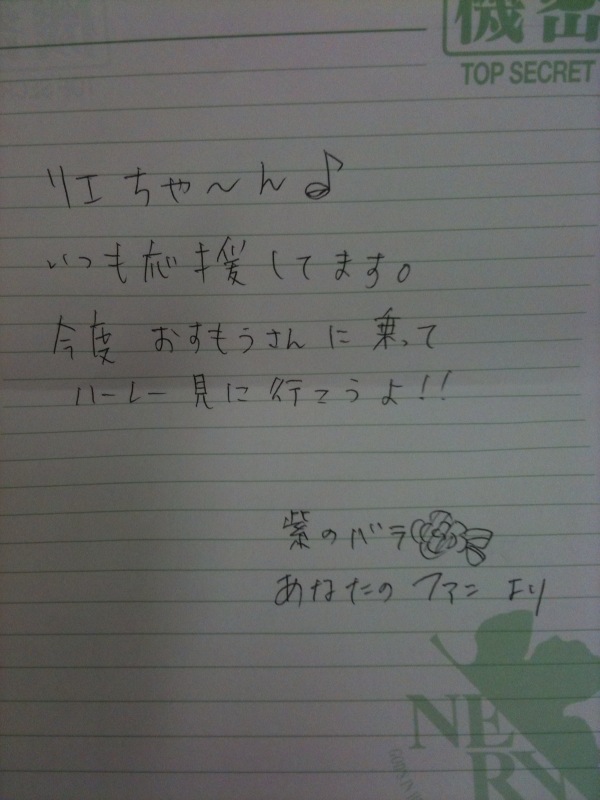 機密
TOP SECRET
リエちゃ〜ん♪
いつも応援してます。
今度 おすもうさんに 乗って
ハーレー 見に 行こうよ!!
紫のバラ
あなたの ファン より
NE
RV